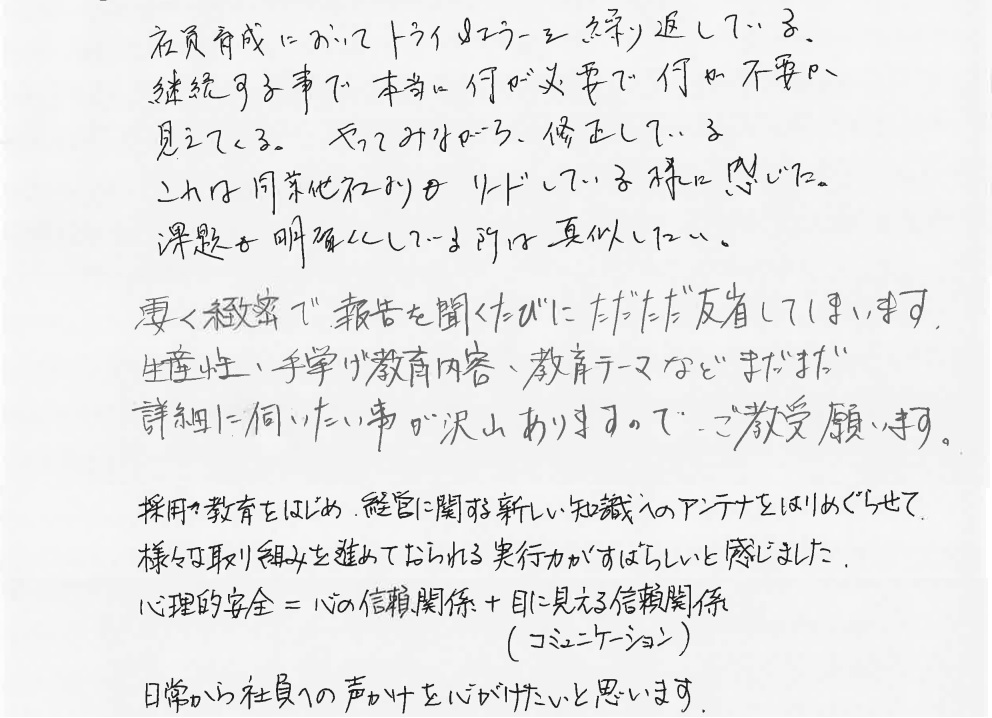 社員育成においてトライ&エラーを繰り返している。
継続する事で本当に何が必要で何が不要か、
見えてくる。 やってみながら、修正している
これは同業他社よりも リードしている様に感じた。
課題を明確化している所は 真似したい。
凄く緻密で報告を聞くたびにただただ反省してしまいます。
生産性、手挙げ教育内容、教育テーマなどまだまだ
詳細に伺いたい事が沢山ありますので、ご教受願います。
採用や教育をはじめ、経営に関する新しい知識へのアンテナをはりめぐらせて、
様々な取り組みを進めておられる実行力がすばらしいと感じました。
心理的安全=心の信頼関係+目に見える信頼関係
(コミュニケーション)
日常から社員への声かけを心がけたいと思います。